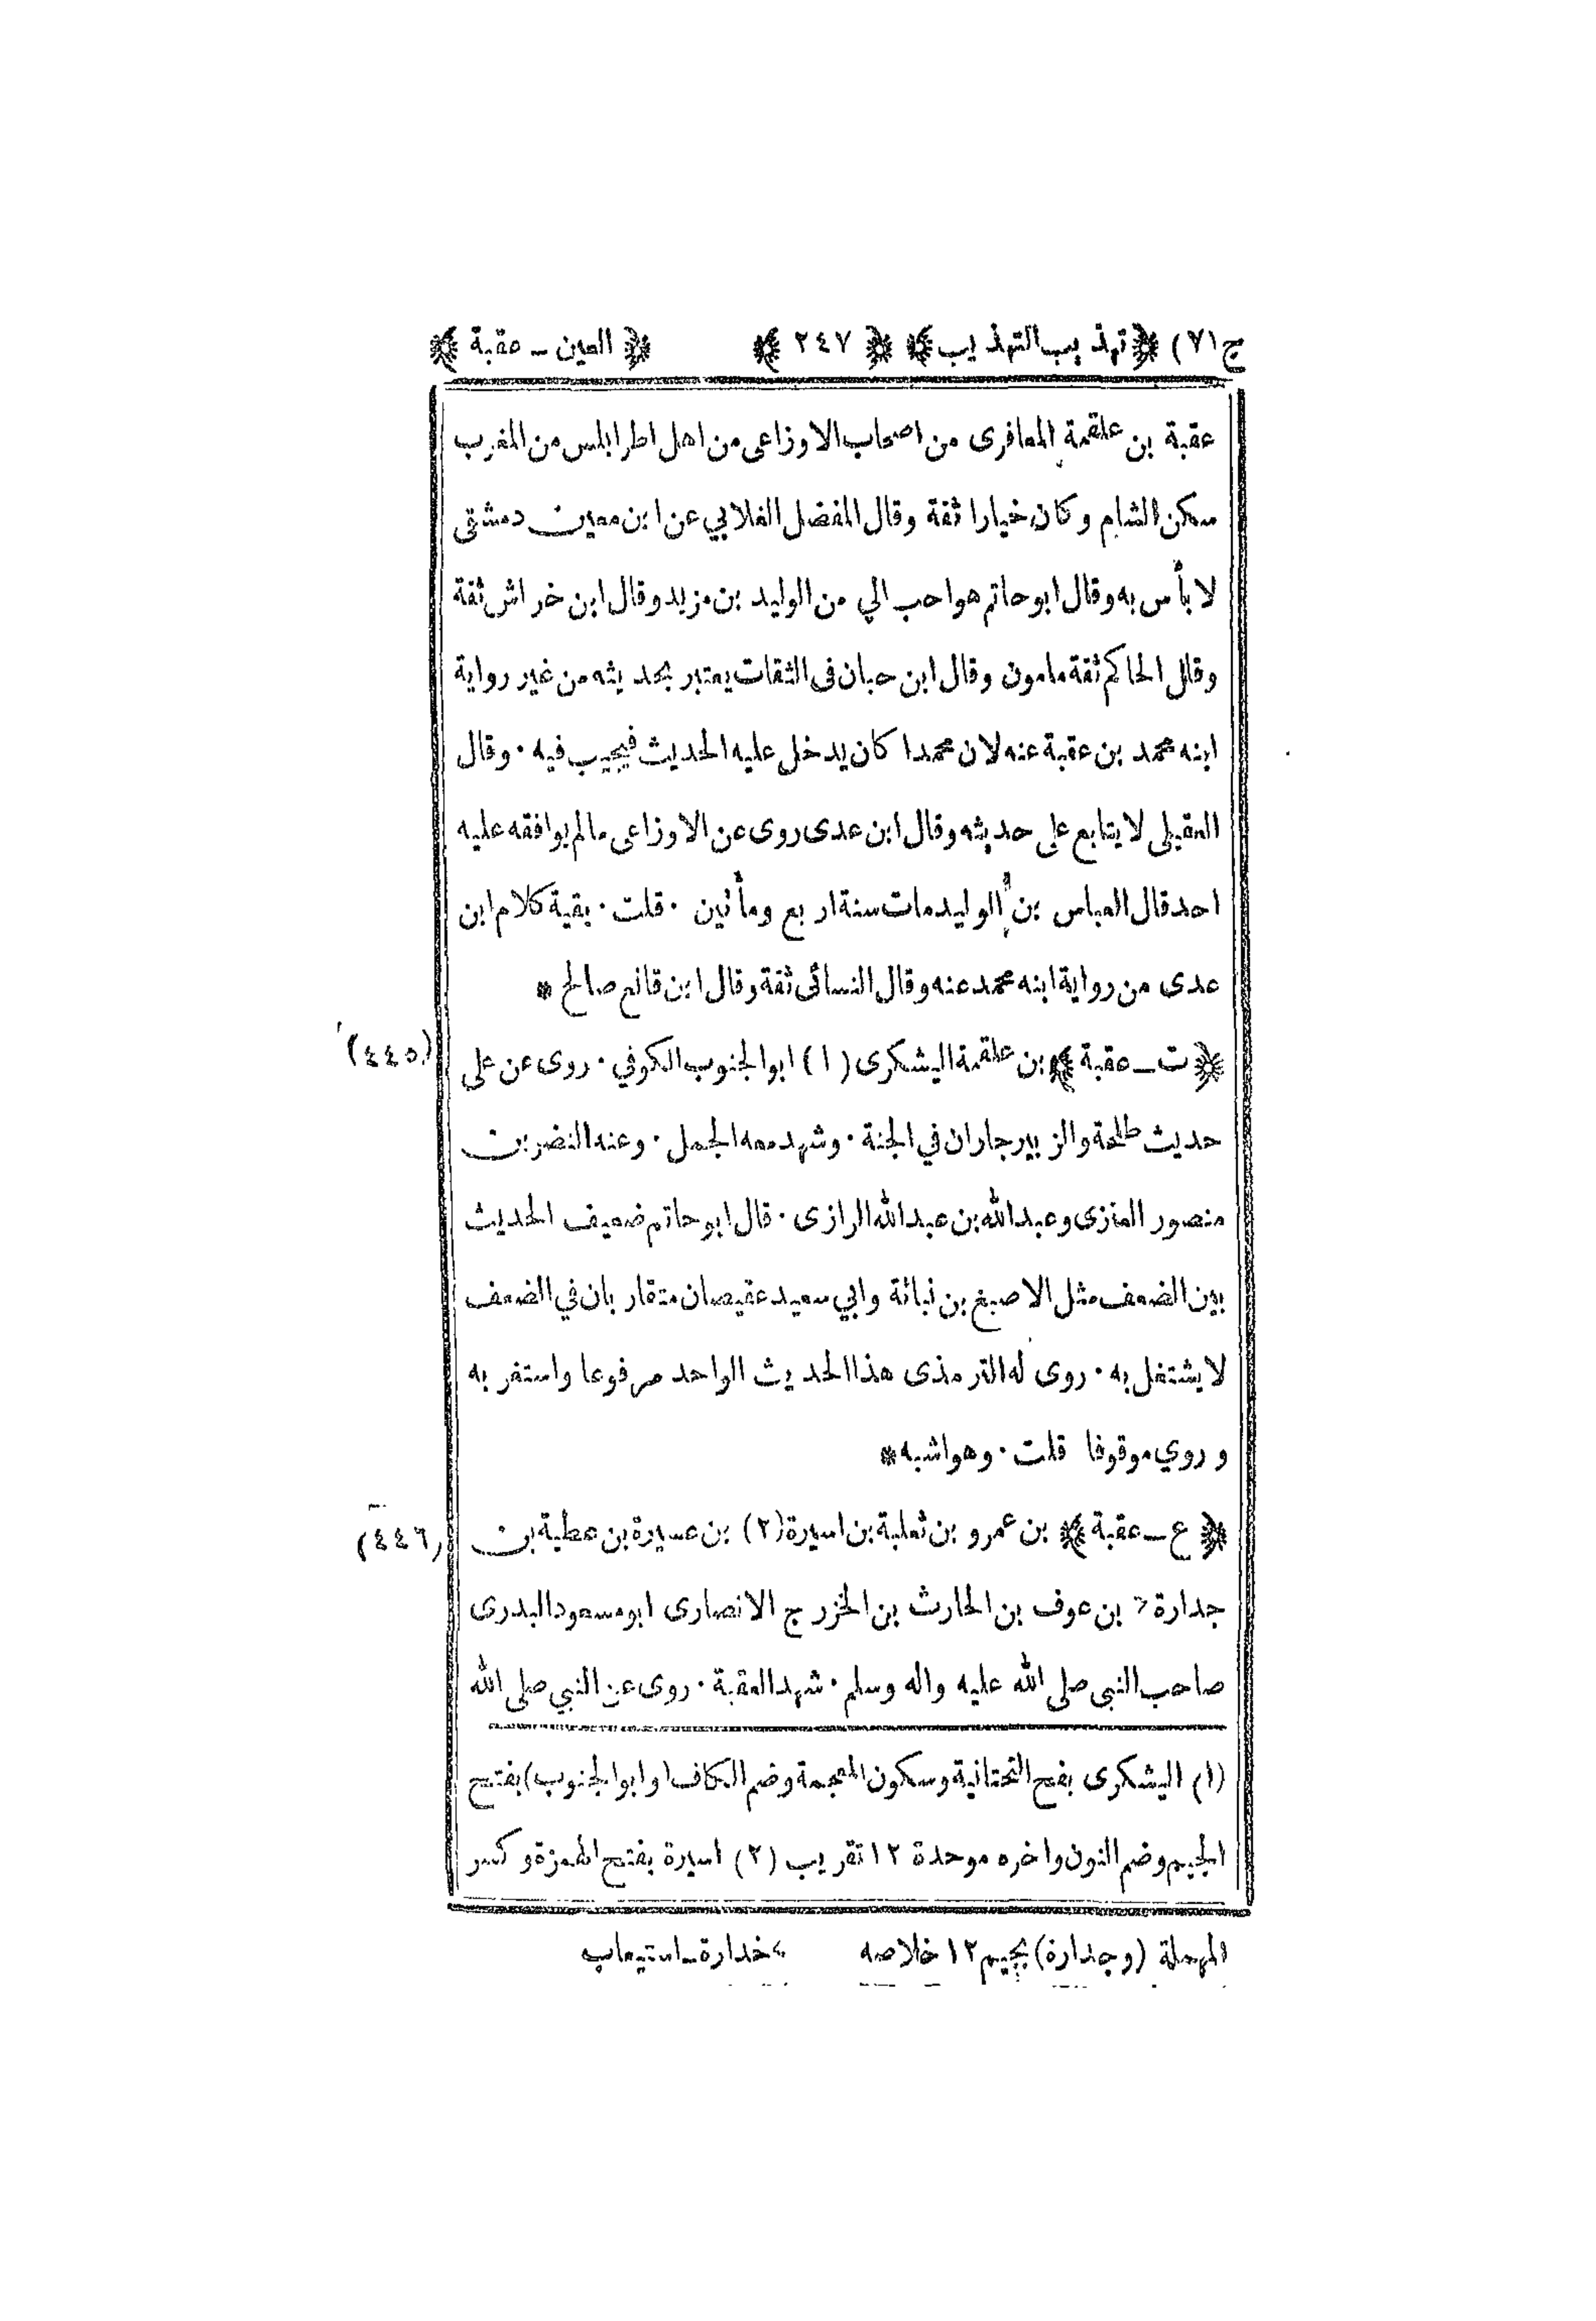 ج (٧) ﴿تهذيب التهذيب﴾ ﴿٢٤٧﴾ ﴿العين ــ عقبة﴾
عقبة بن علقمة المعافرى من اصحاب الاوزاعى من اهل اطرابلس من المغرب
سكن الشام وكان خيارا ثقة وقال المفضل الغلابي عن ابن معين دمشقى
لا بأس به وقال ابو حاتم هو احب الي من الوليد بن مزيد وقال ابن خراش ثقة
وقال الحاكم ثقة مامون وقال ابن حبان فى الثقات يعتبر بحديثه من غير رواية
ابنه محمد بن عقبة عنه لان محمدا كان يدخل عليه الحديث فيجيب فيه ٠ وقال
العقيلى لا يتابع على حديثه وقال ابن عدى روى عن الاوزاعى مالم يوافقه عليه
احد قال العباس بن الوليد مات سنة اربع ومأتين ٠ قلت ٠ بقية كلام ابن
عدى من رواية ابنه محمد عنه وقال النسائى ثقة وقال ابن قانع صالح *
﴿ت ــ عقبة﴾ بن علقمة اليشكرى (١) ابو الجنوب الكوفي ٠ روى عن على (٤٤٥)
حديث طلحة والزبير جاران في الجنة ٠ وشهد معه الجمل ٠ وعنه النضر بن
منصور العنزى وعبد الله بن عبد الله الرازى ٠ قال ابو حاتم ضعيف الحديث
بين الضعف مثل الاصبغ بن نباتة وابي سعيد عقيصان متقاربان في الضعف
لا يشتغل به ٠ روى له الترمذى هذا الحديث الواحد مرفوعا واستغر به
وروي موقوفا قلت ٠ وهو اشبه *
﴿ع ــ عقبة﴾ بن عمرو بن ثعلبة بن اسيرة (٢) بن عسيرة بن عطية بن (٤٤٦)
جدارة بن عوف بن الحارث بن الخزرج الانصارى ابو مسعود البدرى
صاحب النبى صلى الله عليه واله وسلم ٠ شهد العقبة ٠ روى عن النبي صلى الله
(١) اليشكرى بفتح التحتانية وسكون المعجمة وضم الكاف (وابو الجنوب) بفتح
الجيم وضم النون واخره موحدة ١٢ تقريب (٢) اسيرة بفتح الهمزة وكسر
المهملة (وجدارة) بجيم ١٢ خلاصه خدارة ــ استيعاب